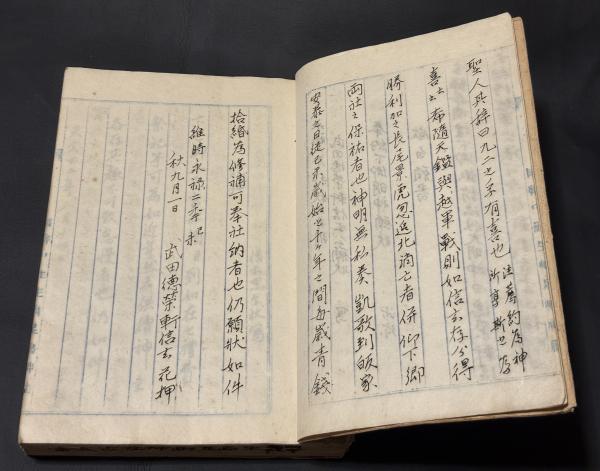 聖人其辞曰九二之孚有喜也 注薦約為神
所享斯也為
喜〻希随天鑑與越軍戦則如信玄存分得
勝利加之長尾景虎忽追北消亡者併仰下郷
両社之保祐者也神明無私奏凱歌到皈家
安泰之日従己未歳始之十ヶ年之間毎歳青銭
拾緡為修補可奉社納者也仍願状如件
維時永禄二年己未
秋九月一日
武田徳栄軒信玄花押